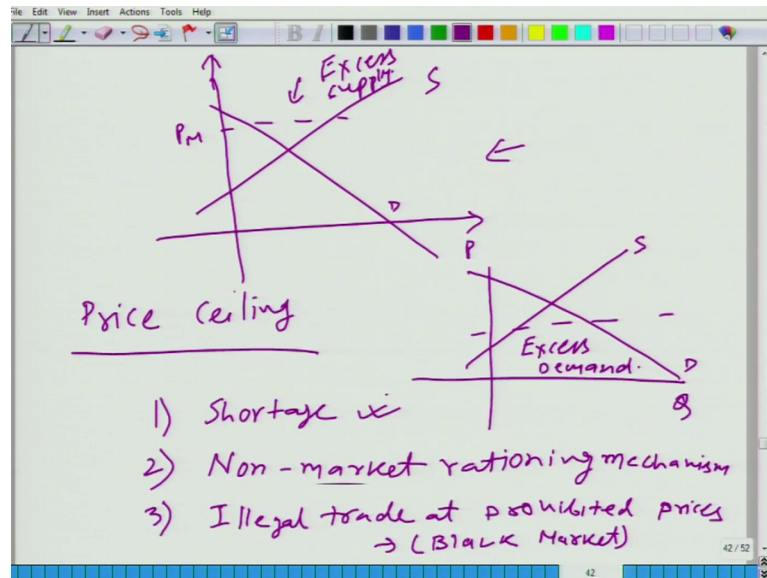 File Edit View Insert Actions Tools Help
B I
Excess
supply
S
PM
D
P
S
Price Ceiling
Excess
Demand.
D
Q
1) Shortage
2) Non-market rationing mechanism
3) Illegal trade at prohibited prices
→ (Black Market)
42/52
42